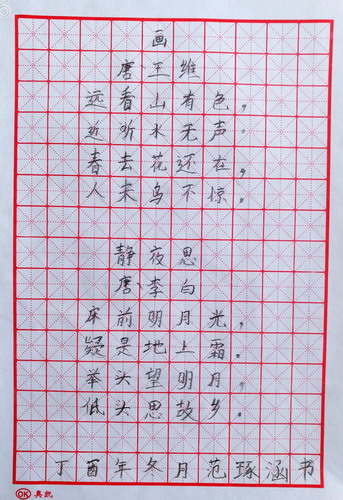 画
唐、王维
远看山有色，
近听水无声。
春去花还在，
人来鸟不惊，
静夜思
唐、李白
床前明月光，
疑是地上霜。
举头望明月，
低头思故乡。
丁酉年冬月范琢涵书
OK 奥凯